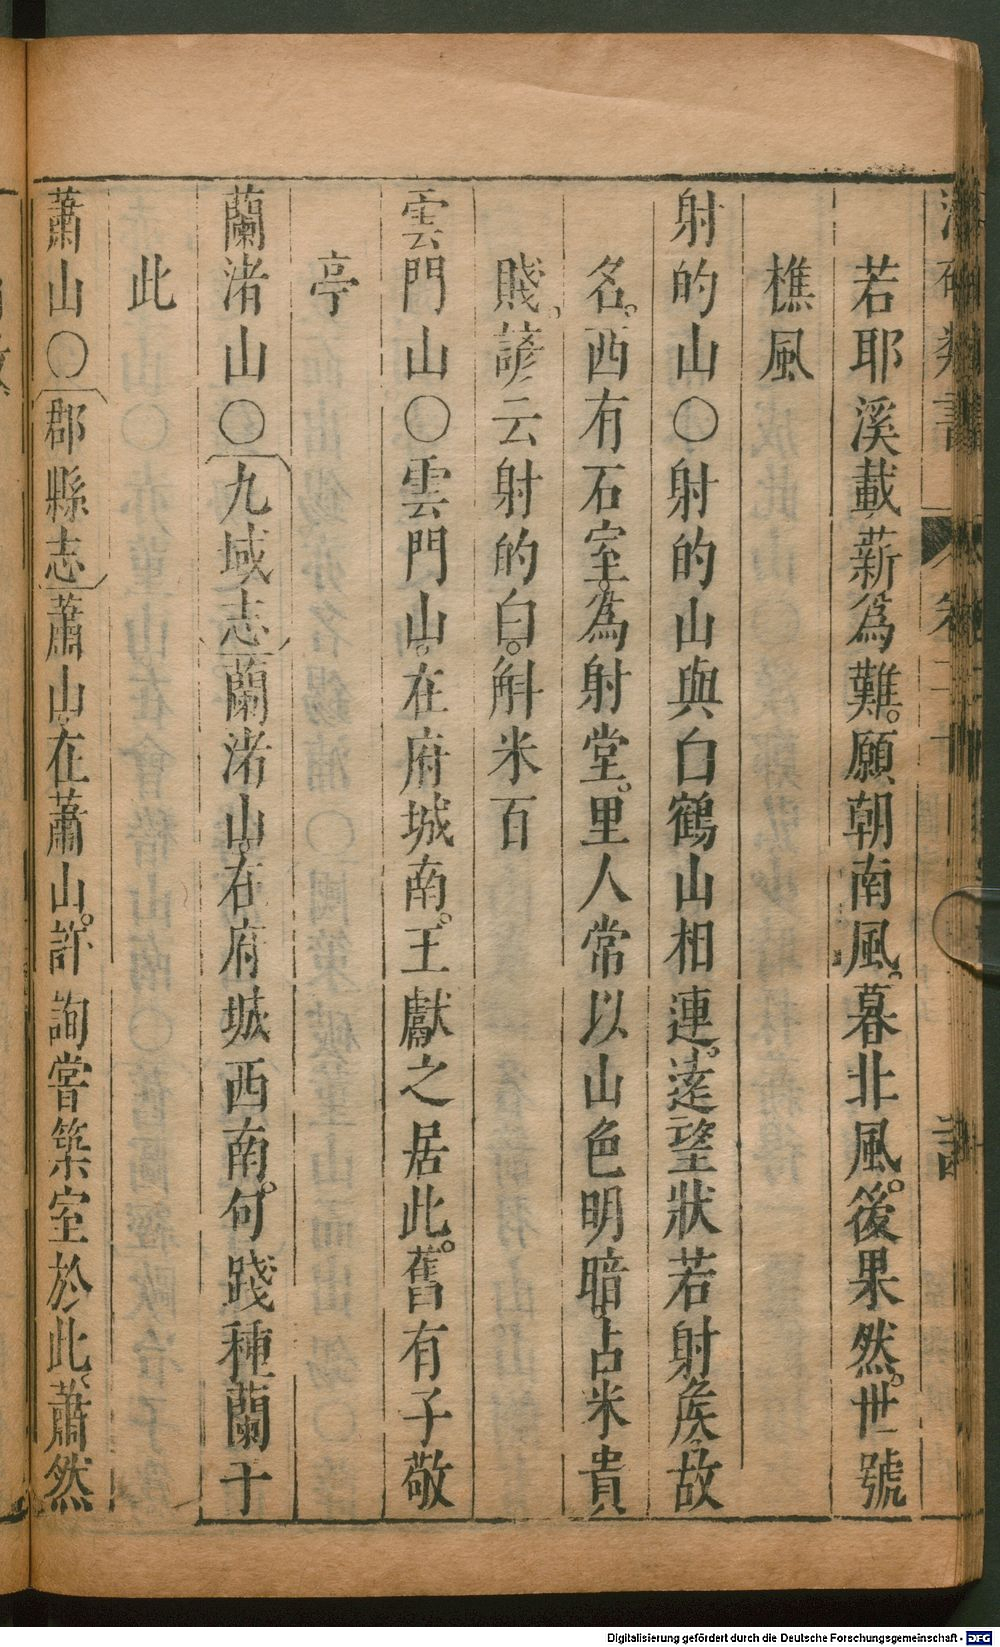 若耶溪載薪爲難。願朝南風。暮北風。後果然。世號
樵風
射的山〇射的山與白鶴山相連。遠望狀若射矦。故
名。西有石室爲射堂。里人常以山色明暗。占米貴
賤。諺云射的白。斛米百
雲門山〇雲門山。在府城南。王獻之居此。舊有子敬
亭
蘭渚山〇九域志蘭渚山。在府城西南。句踐種蘭于
此
蕭山〇郡縣志蕭山。在蕭山。許詢嘗築室於此。蕭然
Digitalisierung gefördert durch die Deutsche Forschungsgemeinschaft - DFG